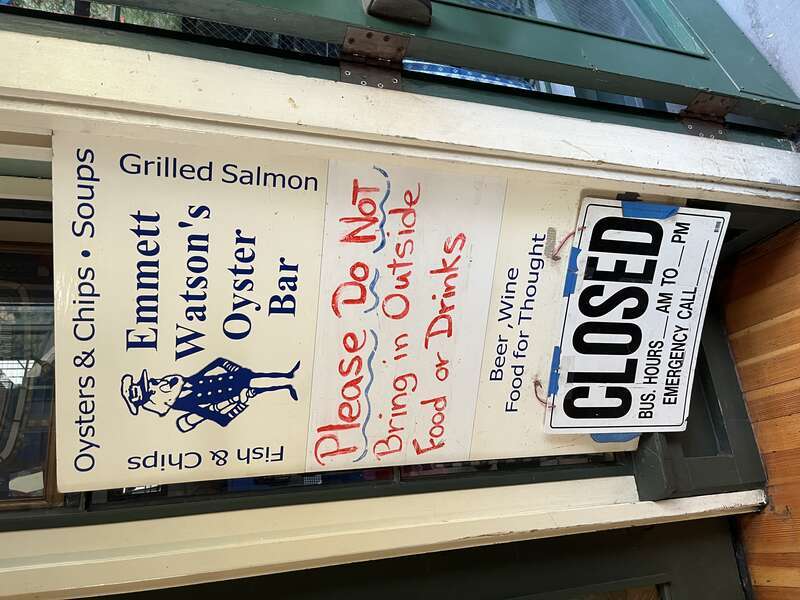 Oysters & Chips • Soups
Fish & Chips
Emmett
Watson's
Oyster
Bar
Grilled Salmon
Please Do Not
Bring in Outside
Food or Drinks
Beer , Wine
Food for Thought
CLOSED
BUS. HOURS AM TO PM
EMERGENCY CALL